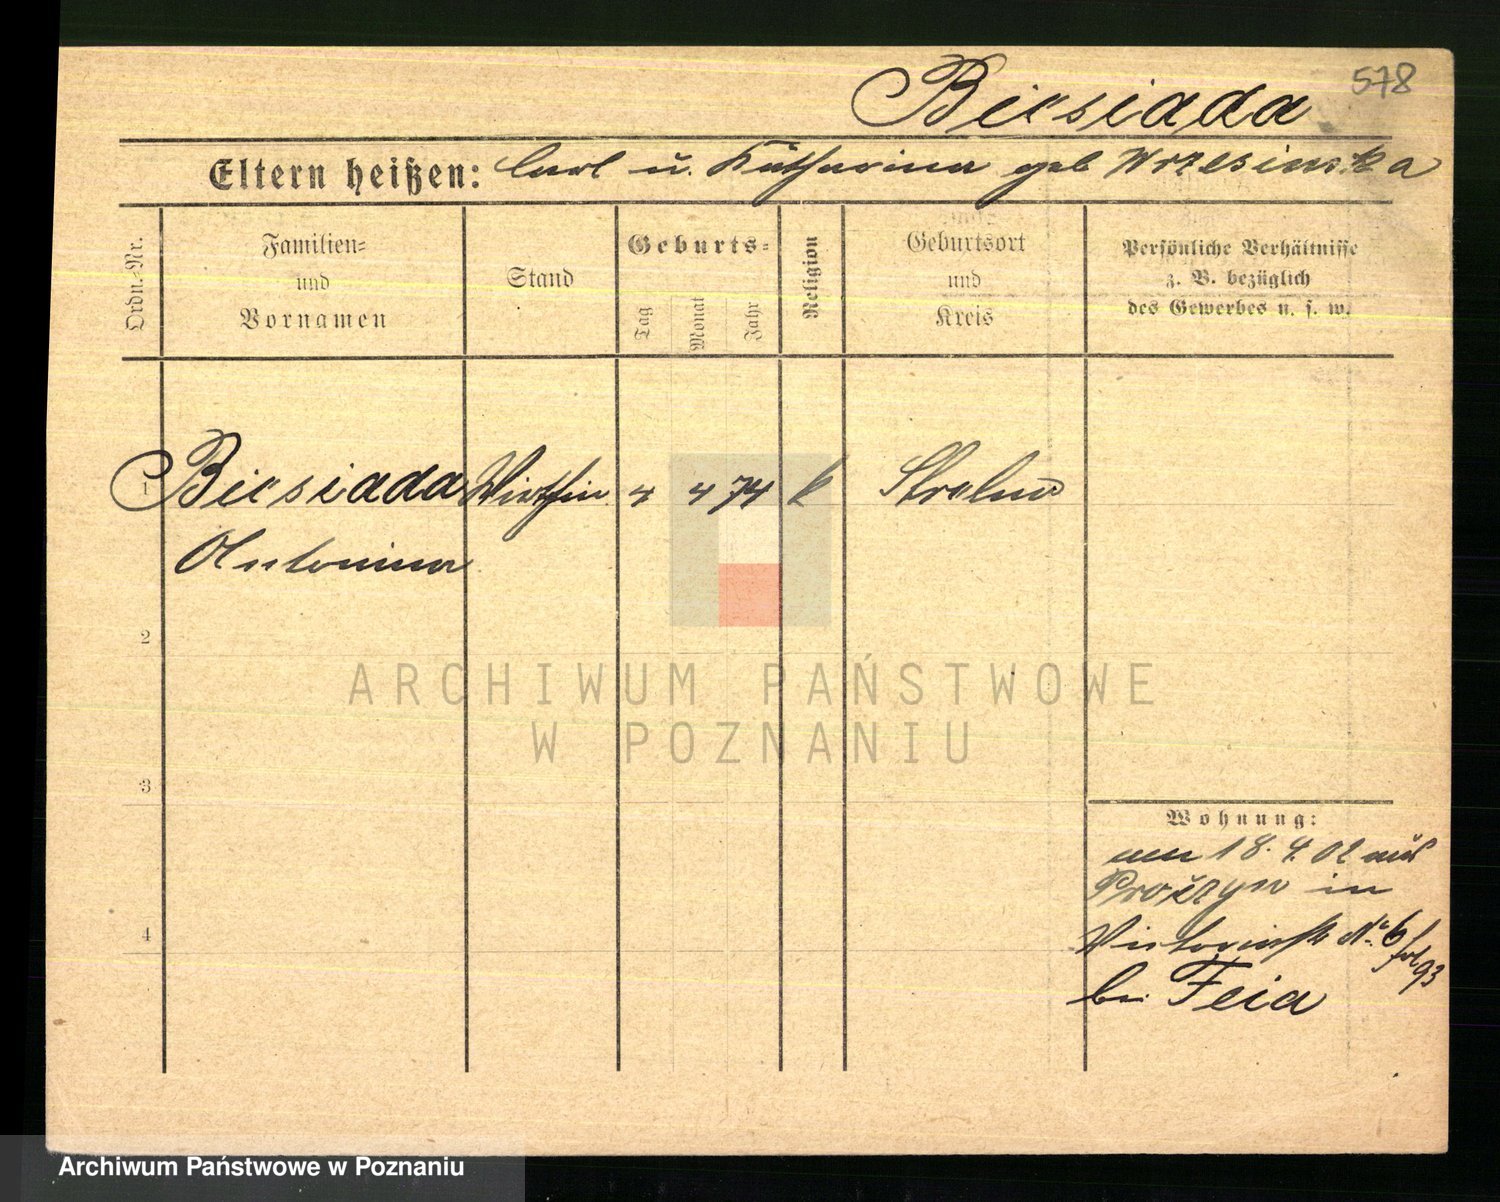 578
Biesiada
Eltern heißen: Carl u. Katharina geb Wrzesinska
Ordn.-Nr.
Familien-
und
Vornamen
Stand
Geburts-
Tag
Monat
Jahr
Religion
Geburtsort
und
Kreis
Persönliche Verhältnisse
z. B. bezüglich
des Gewerbes u. s. w.
1 Biesiada Wirthin 4 4 74 k Strelno
Antonina
2
ARCHIWUM PAŃSTWOWE
W POZNANIU
3
Wohnung:
am 18. 4. 02 aus
in
4
Victoriastr No 6
93
bei Feia
Archiwum Państwowe w Poznaniu